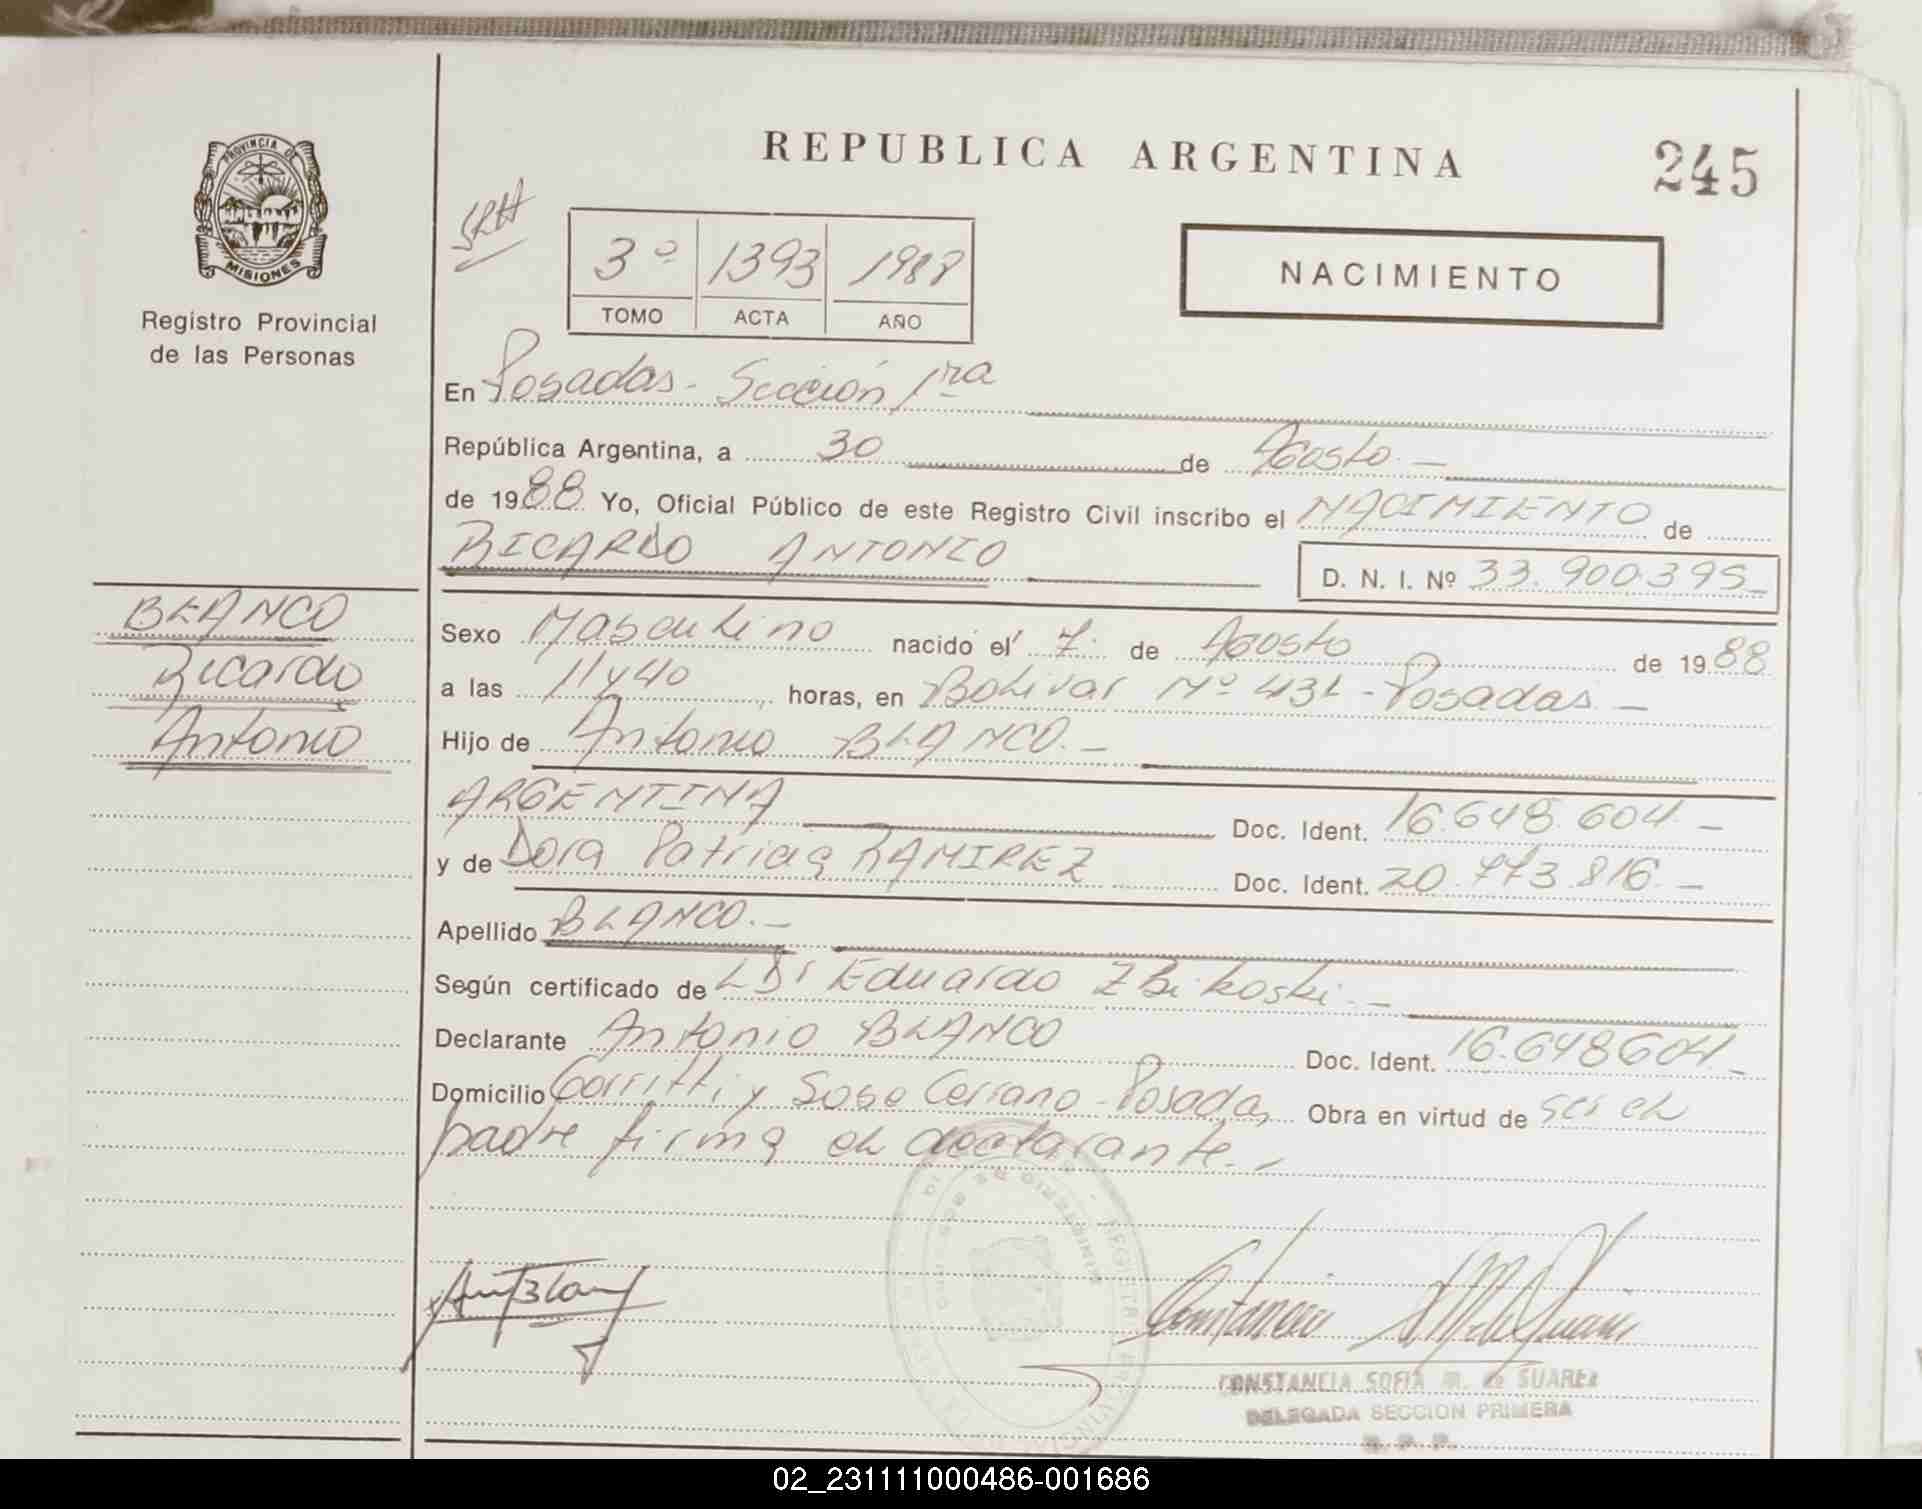 REPUBLICA ARGENTINA
245
PROVINCIA DE
MISIONES
Registro Provincial
de las Personas
3º 1393 1988
TOMO ACTA AÑO
NACIMIENTO
En Posadas - Sección 1ra
República Argentina, a 30 de Agosto -
de 1988 Yo, Oficial Público de este Registro Civil inscribo el NACIMIENTO de
RICARDO ANTONIO
D. N. I. Nº 33.900.395_
BLANCO
Ricardo
Antonio
Sexo Masculino nacido el 7 de Agosto de 1988
a las 11 y 40 horas, en Bolivar Nº 431 - Posadas. -
Hijo de Antonio BLANCO. -
ARGENTINA Doc. Ident. 16.648.604. -
y de Dora Patricia RAMIREZ Doc. Ident. 20.773.816. -
Apellido BLANCO. -
Según certificado de Eduardo Zbikoski. -
Declarante Antonio BLANCO Doc. Ident. 16.648604. -
Domicilio Gorritti y Cerrano - Posadas Obra en virtud de ser el
padre firma el declarante. -
CONSTANCIA SOFIA M. de SUAREZ
DELEGADA SECCION PRIMERA
R. P. P.
02_231111000486-001686